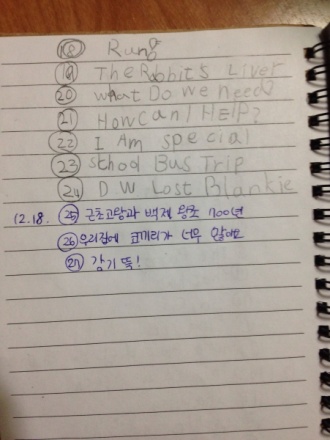 18 Rung
19 The Rabbit's Liver
20 What Do we Need?
21 How Can I HElP?
22 I Am special
23 School Bus Trip
24 D W Lost Blankie
12.18. 25 근초고왕과 백제 왕조 700년
26 우리집에 코끼리가 너무 많아요
27 감기 뚝!